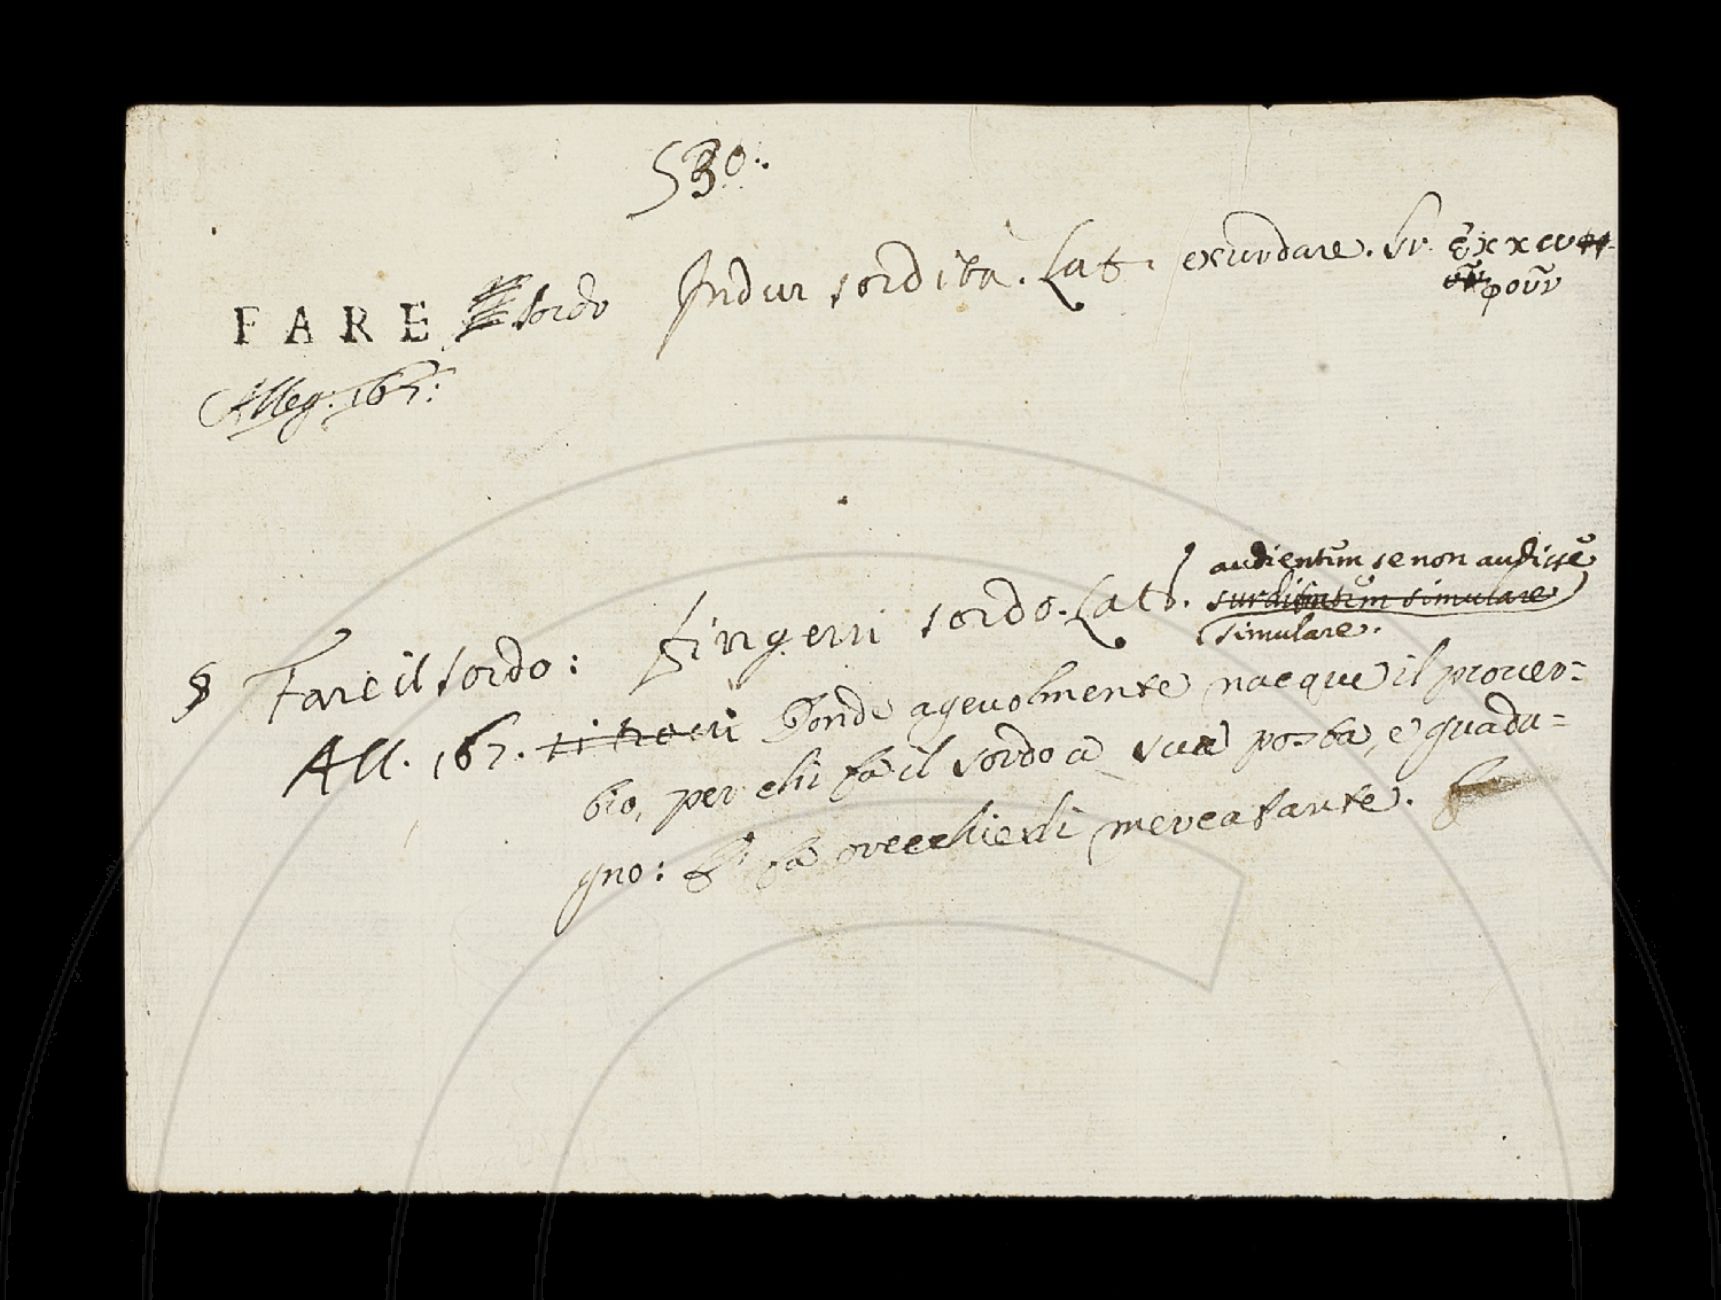 530.
FARE sordo Indur sordità. Lat. exurdare. Gr. ἐκκω
φοῦν
Alleg. 167.
§ Fare il sordo: Fingersi sordo. Lat. audientem se non audisse
surditatem simulare
simulare.
All. 167. Donde agevolmente nacque il prover=
bio, per chi fa il sordo a sua posta, e guada=
gno: Ei fa orecchie di mercatante.